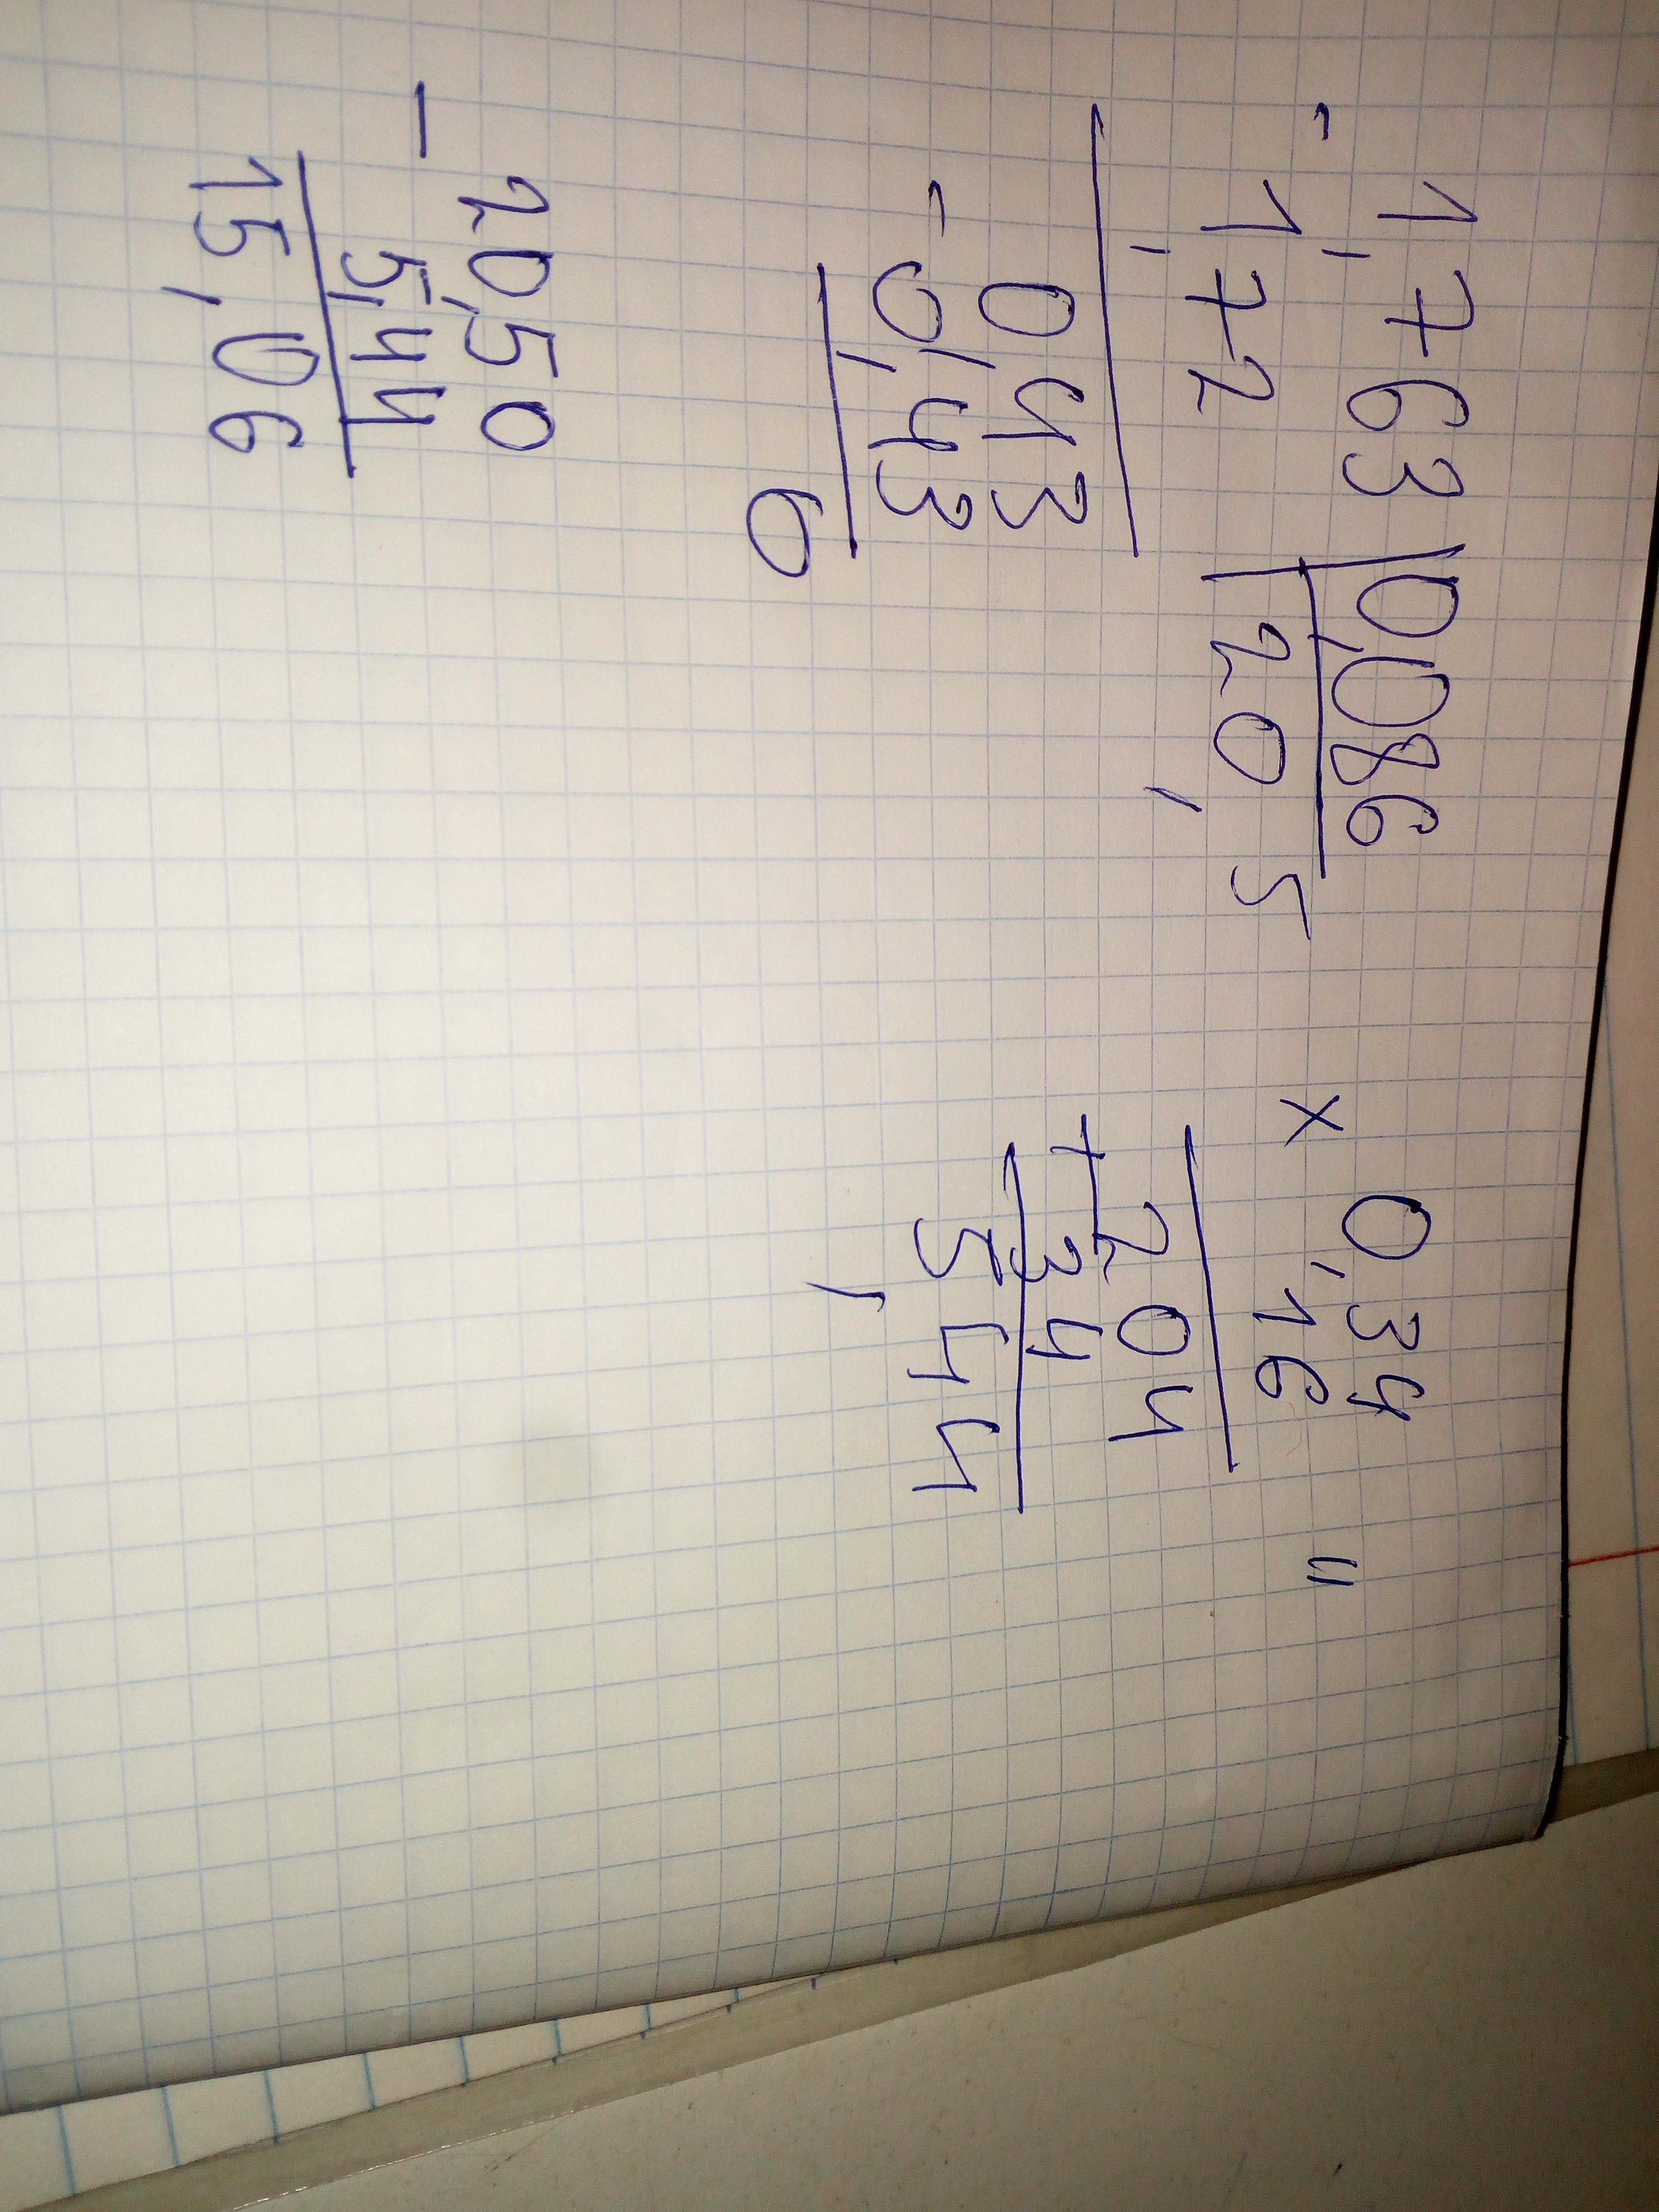 - 1,763 | 0,086
1,72 | 20,5
0,43
- 0,43
0
× 0,34
16
204
+ 34
5,44
"
- 20,50
5,44
15,06